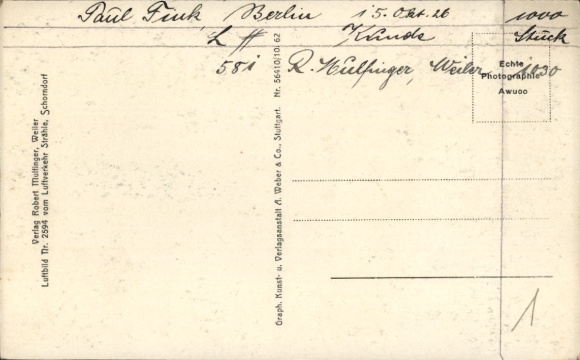 Paul Fink, Berlin 15. Okt. 26 1000
Kunde Stück
581 R. Mulfinger, Weiler 1030
Echte
Photographie
Awuoo
Verlag Robert Mulfinger, Weiler
Luftbild Nr. 2594 vom Luftverkehr Strähle, Schorndorf
Graph. Kunst- u. Verlagsanstalt A. Weber & Co., Stuttgart. Nr. 56410/10. 62
1